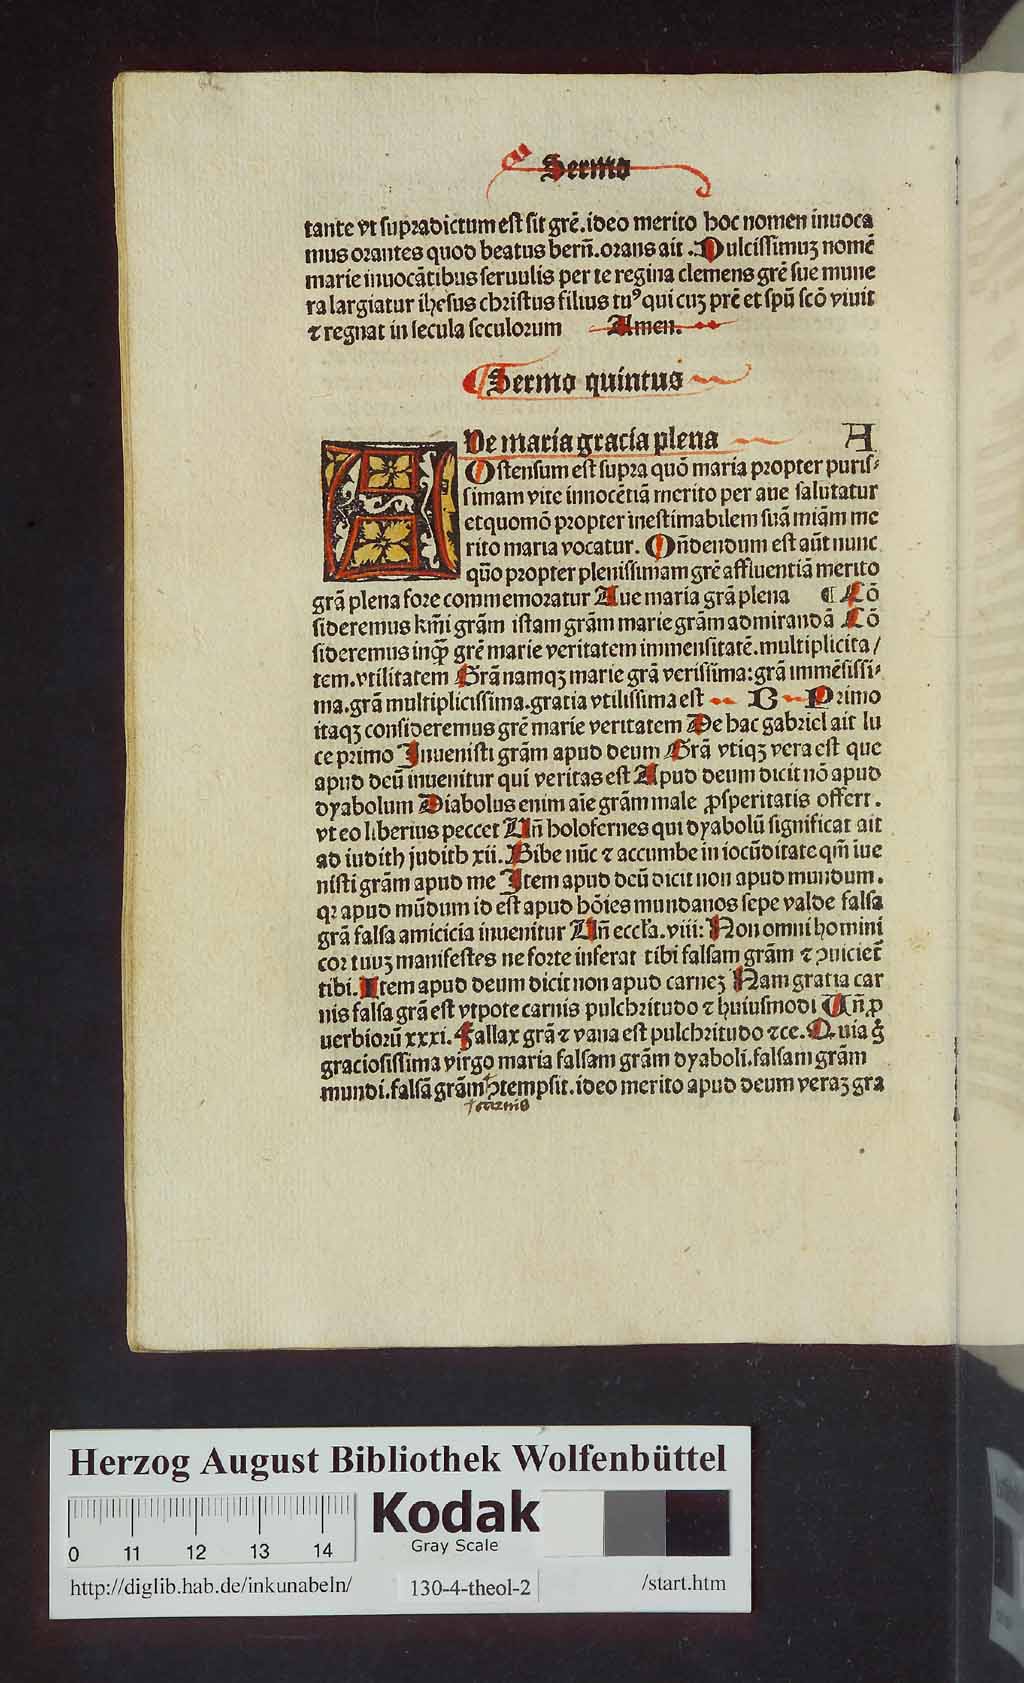 Sermo
tante vt supradictum est sit grē. ideo merito hoc nomen inuoca
mus orantes quod beatus berñ. orans ait . Dulcissimuȝ nomē
marie inuocātibus seruulis per te regina clemens grē sue mune
ra largiatur ihesus christus filius tuꝰ qui cuȝ prē et spū scō viuit
⁊ regnat in secula seculorum Amen.
Sermo quintus
De maria gracia plena A
Ostensum est supra quō maria propter puris⸗
simam vite innocētiā merito per aue salutatur
et quomō propter inestimabilem suā miām me
rito maria vocatur. Oñdendum est aūt nunc
qūo propter plenissimam grē affluentiā merito
grā plena fore commemoratur Aue maria grā plena ¶ Cō
sideremus kmi̅ grām istam grām marie grām admirandā Cō
sideremus inqꝫ grē marie veritatem immensitatē. multiplicita/
tem. vtilitatem Grā namqȝ marie grā verissima: grā immēsissi⸗
ma. grā multiplicissima. gratia vtilissima est B Primo
itaqȝ consideremus grē marie veritatem De hac gabriel ait lu
ce primo Inuenisti grām apud deum Grā vtiqȝ vera est que
apud deū inuenitur qui veritas est Apud deum dicit nō apud
dyabolum Diabolus enim aīe grām male ꝓsperitatis offert .
vt eo liberius peccet Uñ holofernes qui dyabolū significat ait
ad iudith judith xii. Bibe nūc ⁊ accumbe in iocūditate qm̄ iue
nisti grām apud me Item apud deū dicit non apud mundum .
qꝛ apud mūdum id est apud hōies mundanos sepe valde falsa
grā falsa amicicia inuenitur Uñ eccl'a. viii: Non omni homini
cor tuuȝ manifestes ne forte inferat tibi falsam grām ⁊ ꝯuiciet̄
tibi. Item apud deum dicit non apud carneȝ Nam gratia car
nis falsa grā est vtpote carnis pulchritudo ⁊ huiusmodi Uñ ꝓ
uerbiorū xxxi. Fallax grā ⁊ vana est pulchritudo ⁊ce. Quia g̊
graciosissima virgo maria falsam grām dyaboli. falsam grām
mundi. falsā grām ꝯtempsit. ideo merito apud deum veraȝ gra
carnis
Herzog August Bibliothek Wolfenbüttel
Kodak
Gray Scale
0 11 12 13 14
http://diglib.hab.de/inkunabeln/ 130-4-theol-2 /start.htm